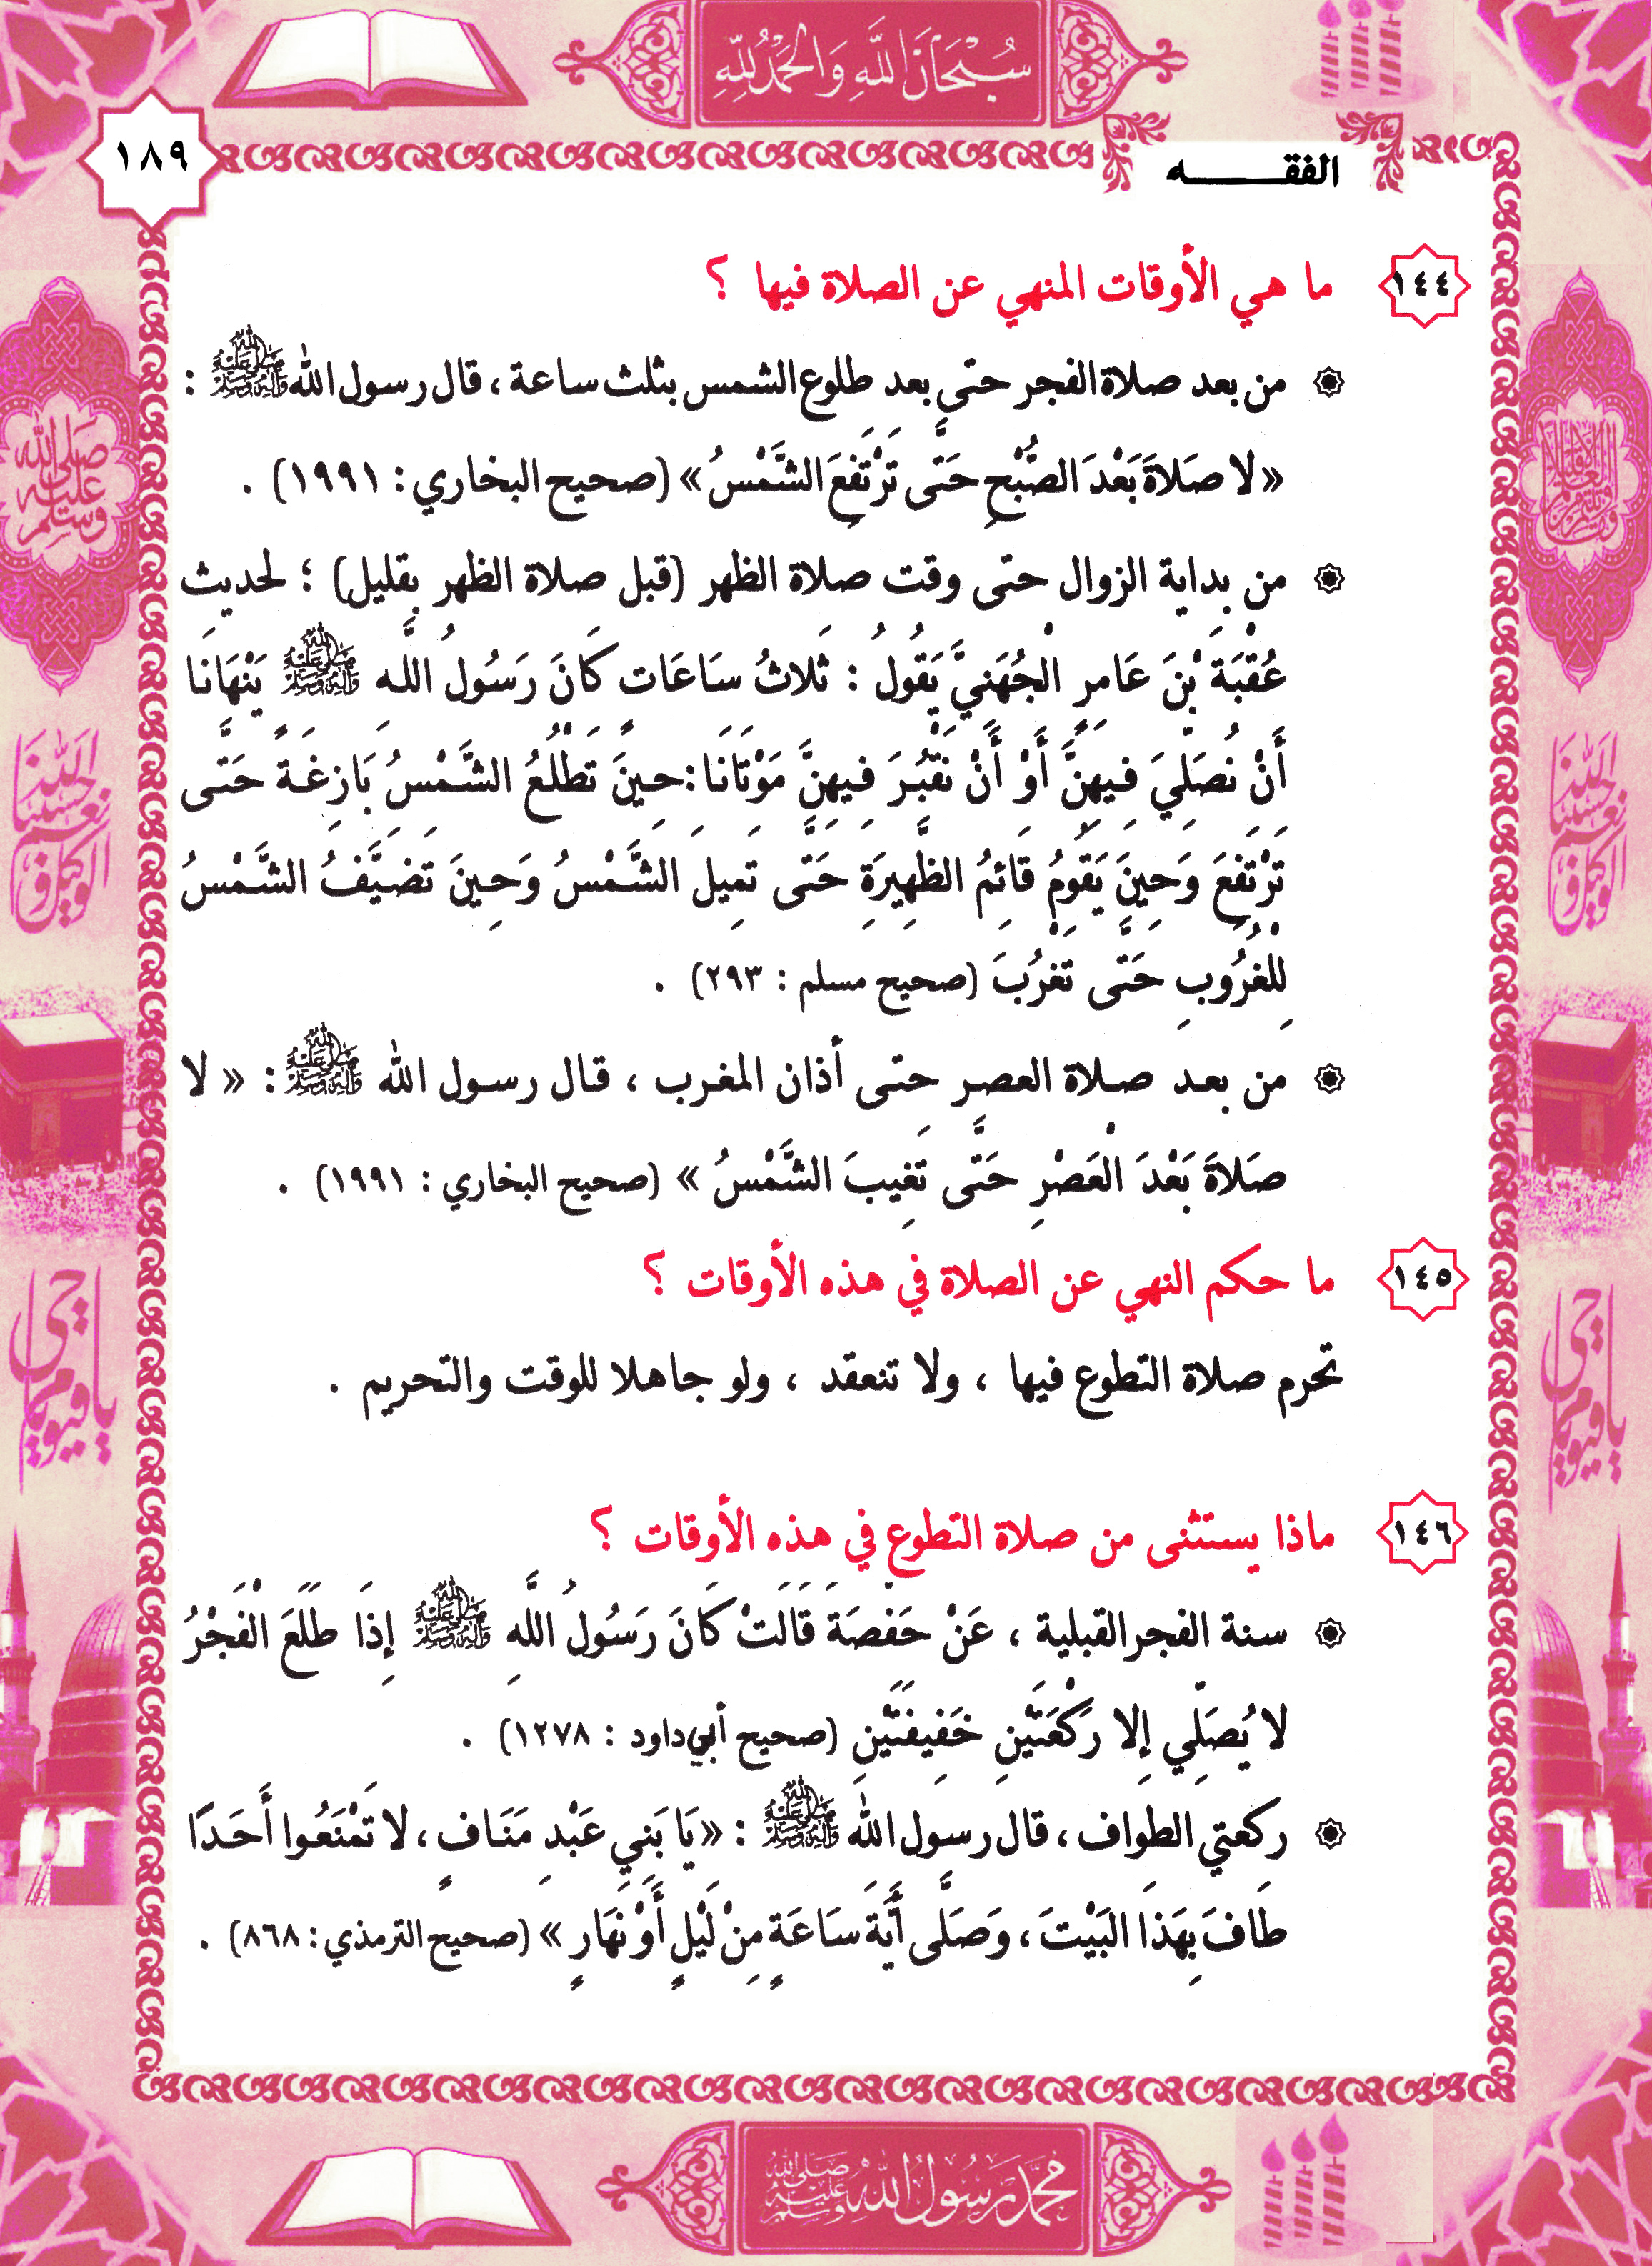 سُبْحَانَ اللَّهِ وَالْحَمْدُ لِلَّهِ
١٨٩
الفقـــــه
١٤٤ ما هي الأوقات المنهي عن الصلاة فيها ؟
من بعد صلاة الفجر حتى بعد طلوع الشمس بثلث ساعة ، قال رسول الله ﷺ :
«لا صَلاةَ بَعْدَ الصُّبْحِ حَتَّى تَرْتَفِعَ الشَّمْسُ» (صحيح البخاري : ١٩٩١) .
من بداية الزوال حتى وقت صلاة الظهر (قبل صلاة الظهر بقليل) ؛ لحديث
عُقْبَةَ بْنَ عَامِرٍ الْجُهَنِيَّ يَقُولُ : ثَلاثُ سَاعَاتٍ كَانَ رَسُولُ اللَّه ﷺ يَنْهَانَا
أَنْ نُصَلِّيَ فِيهِنَّ أَوْ أَنْ نَقْبُرَ فِيهِنَّ مَوْتَانَا : حِينَ تَطْلُعُ الشَّمْسُ بَازِغَةً حَتَّى
تَرْتَفِعَ وَحِينَ يَقُومُ قَائِمُ الظَّهِيرَةِ حَتَّى تَمِيلَ الشَّمْسُ وَحِينَ تَضَيَّفُ الشَّمْسُ
لِلْغُرُوبِ حَتَّى تَغْرُبَ (صحيح مسلم : ٢٩٣) .
من بعد صلاة العصر حتى أذان المغرب ، قال رسول الله ﷺ : « لا
صَلاةَ بَعْدَ الْعَصْرِ حَتَّى تَغِيبَ الشَّمْسُ » (صحيح البخاري : ١٩٩١) .
١٤٥ ما حكم النهي عن الصلاة في هذه الأوقات ؟
تحرم صلاة التطوع فيها ، ولا تنعقد ، ولو جاهلا للوقت والتحريم .
١٤٦ ماذا يستثنى من صلاة التطوع في هذه الأوقات ؟
سنة الفجر القبلية ، عَنْ حَفْصَةَ قَالَتْ كَانَ رَسُولُ اللَّهِ ﷺ إِذَا طَلَعَ الْفَجْرُ
لا يُصَلِّي إِلا رَكْعَتَيْنِ خَفِيفَتَيْنِ (صحيح أبي داود : ١٢٧٨) .
ركعتي الطواف ، قال رسول الله ﷺ : «يَا بَنِي عَبْدِ مَنَافٍ ، لا تَمْنَعُوا أَحَدًا
طَافَ بِهَذَا الْبَيْتَ ، وَصَلَّى أَيَّةَ سَاعَةٍ مِنْ لَيْلٍ أَوْ نَهَارٍ » (صحيح الترمذي : ٨٦٨) .
صلى الله عليه وسلم
حسبنا الله ونعم الوكيل
حسبنا الله ونعم الوكيل
يا حي يا قيوم
يا حي يا قيوم
محمد رسول الله صلى الله عليه وسلم